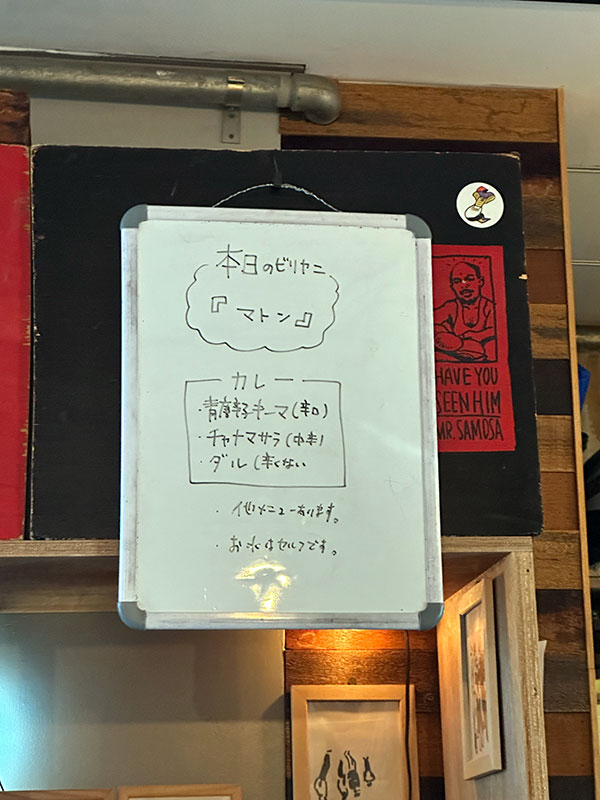 本日のビリヤニ
『マトン』
カレー
・青唐辛子キーマ(辛口)
・チャナマサラ(中辛)
・ダル(辛くない
・他メニューあります。
・お水はセルフです。
HAVE YOU
SEEN HIM
MR. SAMOSA